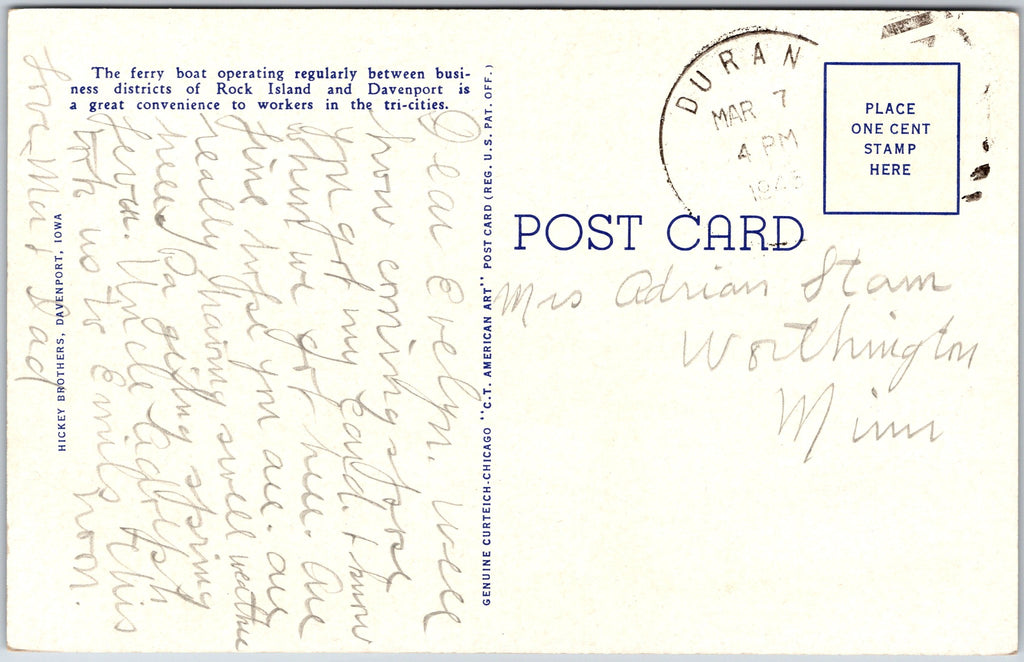 The ferry boat operating regularly between busi-
ness districts of Rock Island and Davenport is
a great convenience to workers in the tri-cities.
HICKEY BROTHERS, DAVENPORT, IOWA
Dear Evelyn. Well
how coming spose
you got my card. + know
when we got here. Are
fine hope you are. are
really having swell weather
here Pa getting spring
fever. Uncle
took us to Emils this
noon.
Love Ma + Dad
GENUINE CURTEICH-CHICAGO "C.T. AMERICAN ART" POST CARD (REG. U.S. PAT. OFF.)
DURAN
MAR 7
4 PM
PLACE
ONE CENT
STAMP
HERE
POST CARD
Mrs Adrian Stam
Worthington
Minn